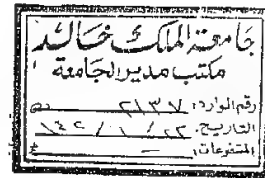 جامعة الملك خالد
مكتب مدير الجامعة
رقم الوارد: ٢١٣٧
التاريخ: ٢٢ / ١ / ١٤٢
المتفوعات: